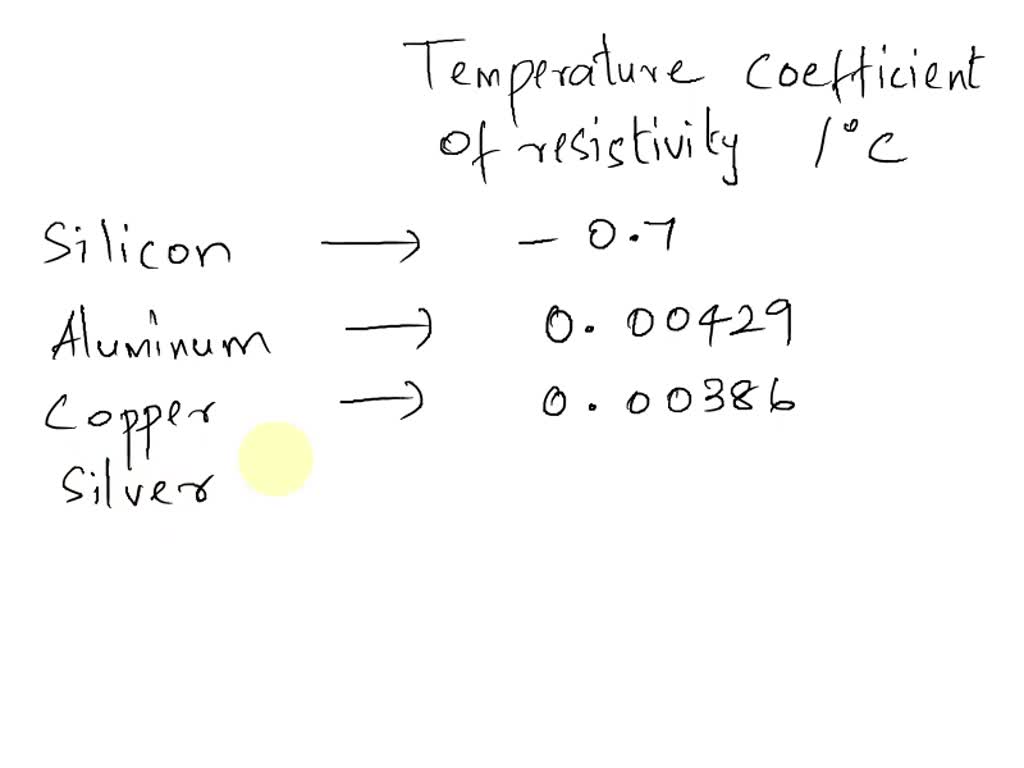 Temperature coefficient
of resistivity /°C
Silicon → - 0.7
Aluminum → 0.00429
Copper → 0.00386
Silver